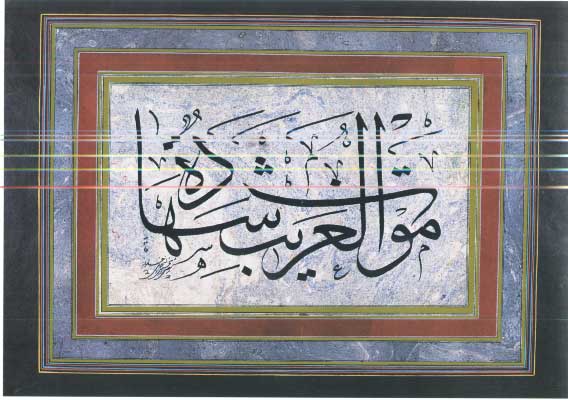 موت الغريب شهادة